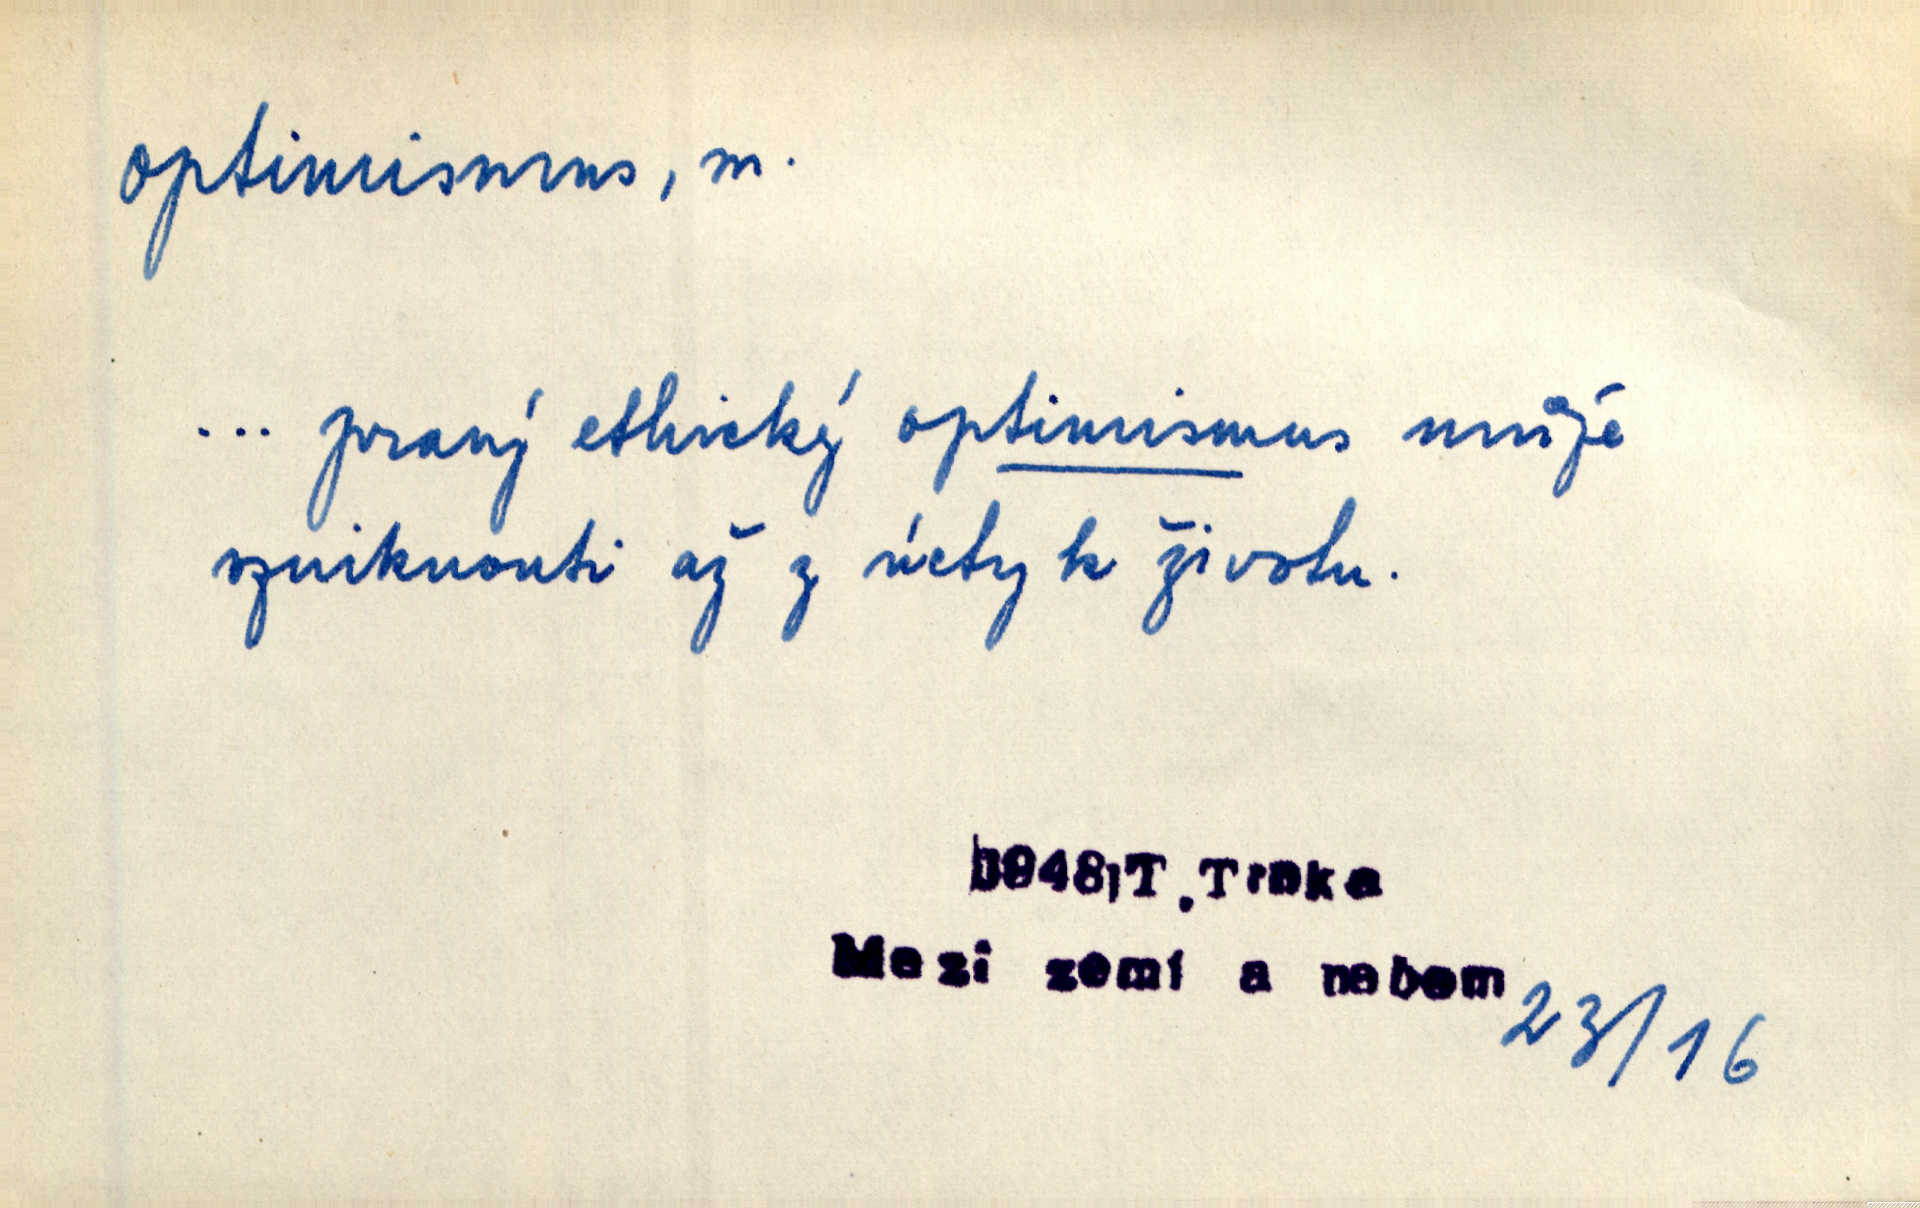 optimismus, m.
... pravý ethický optimismus může
vzniknouti až z úcty k životu.
1948, T. Trnka
Mezi zemí a nebem
23/16